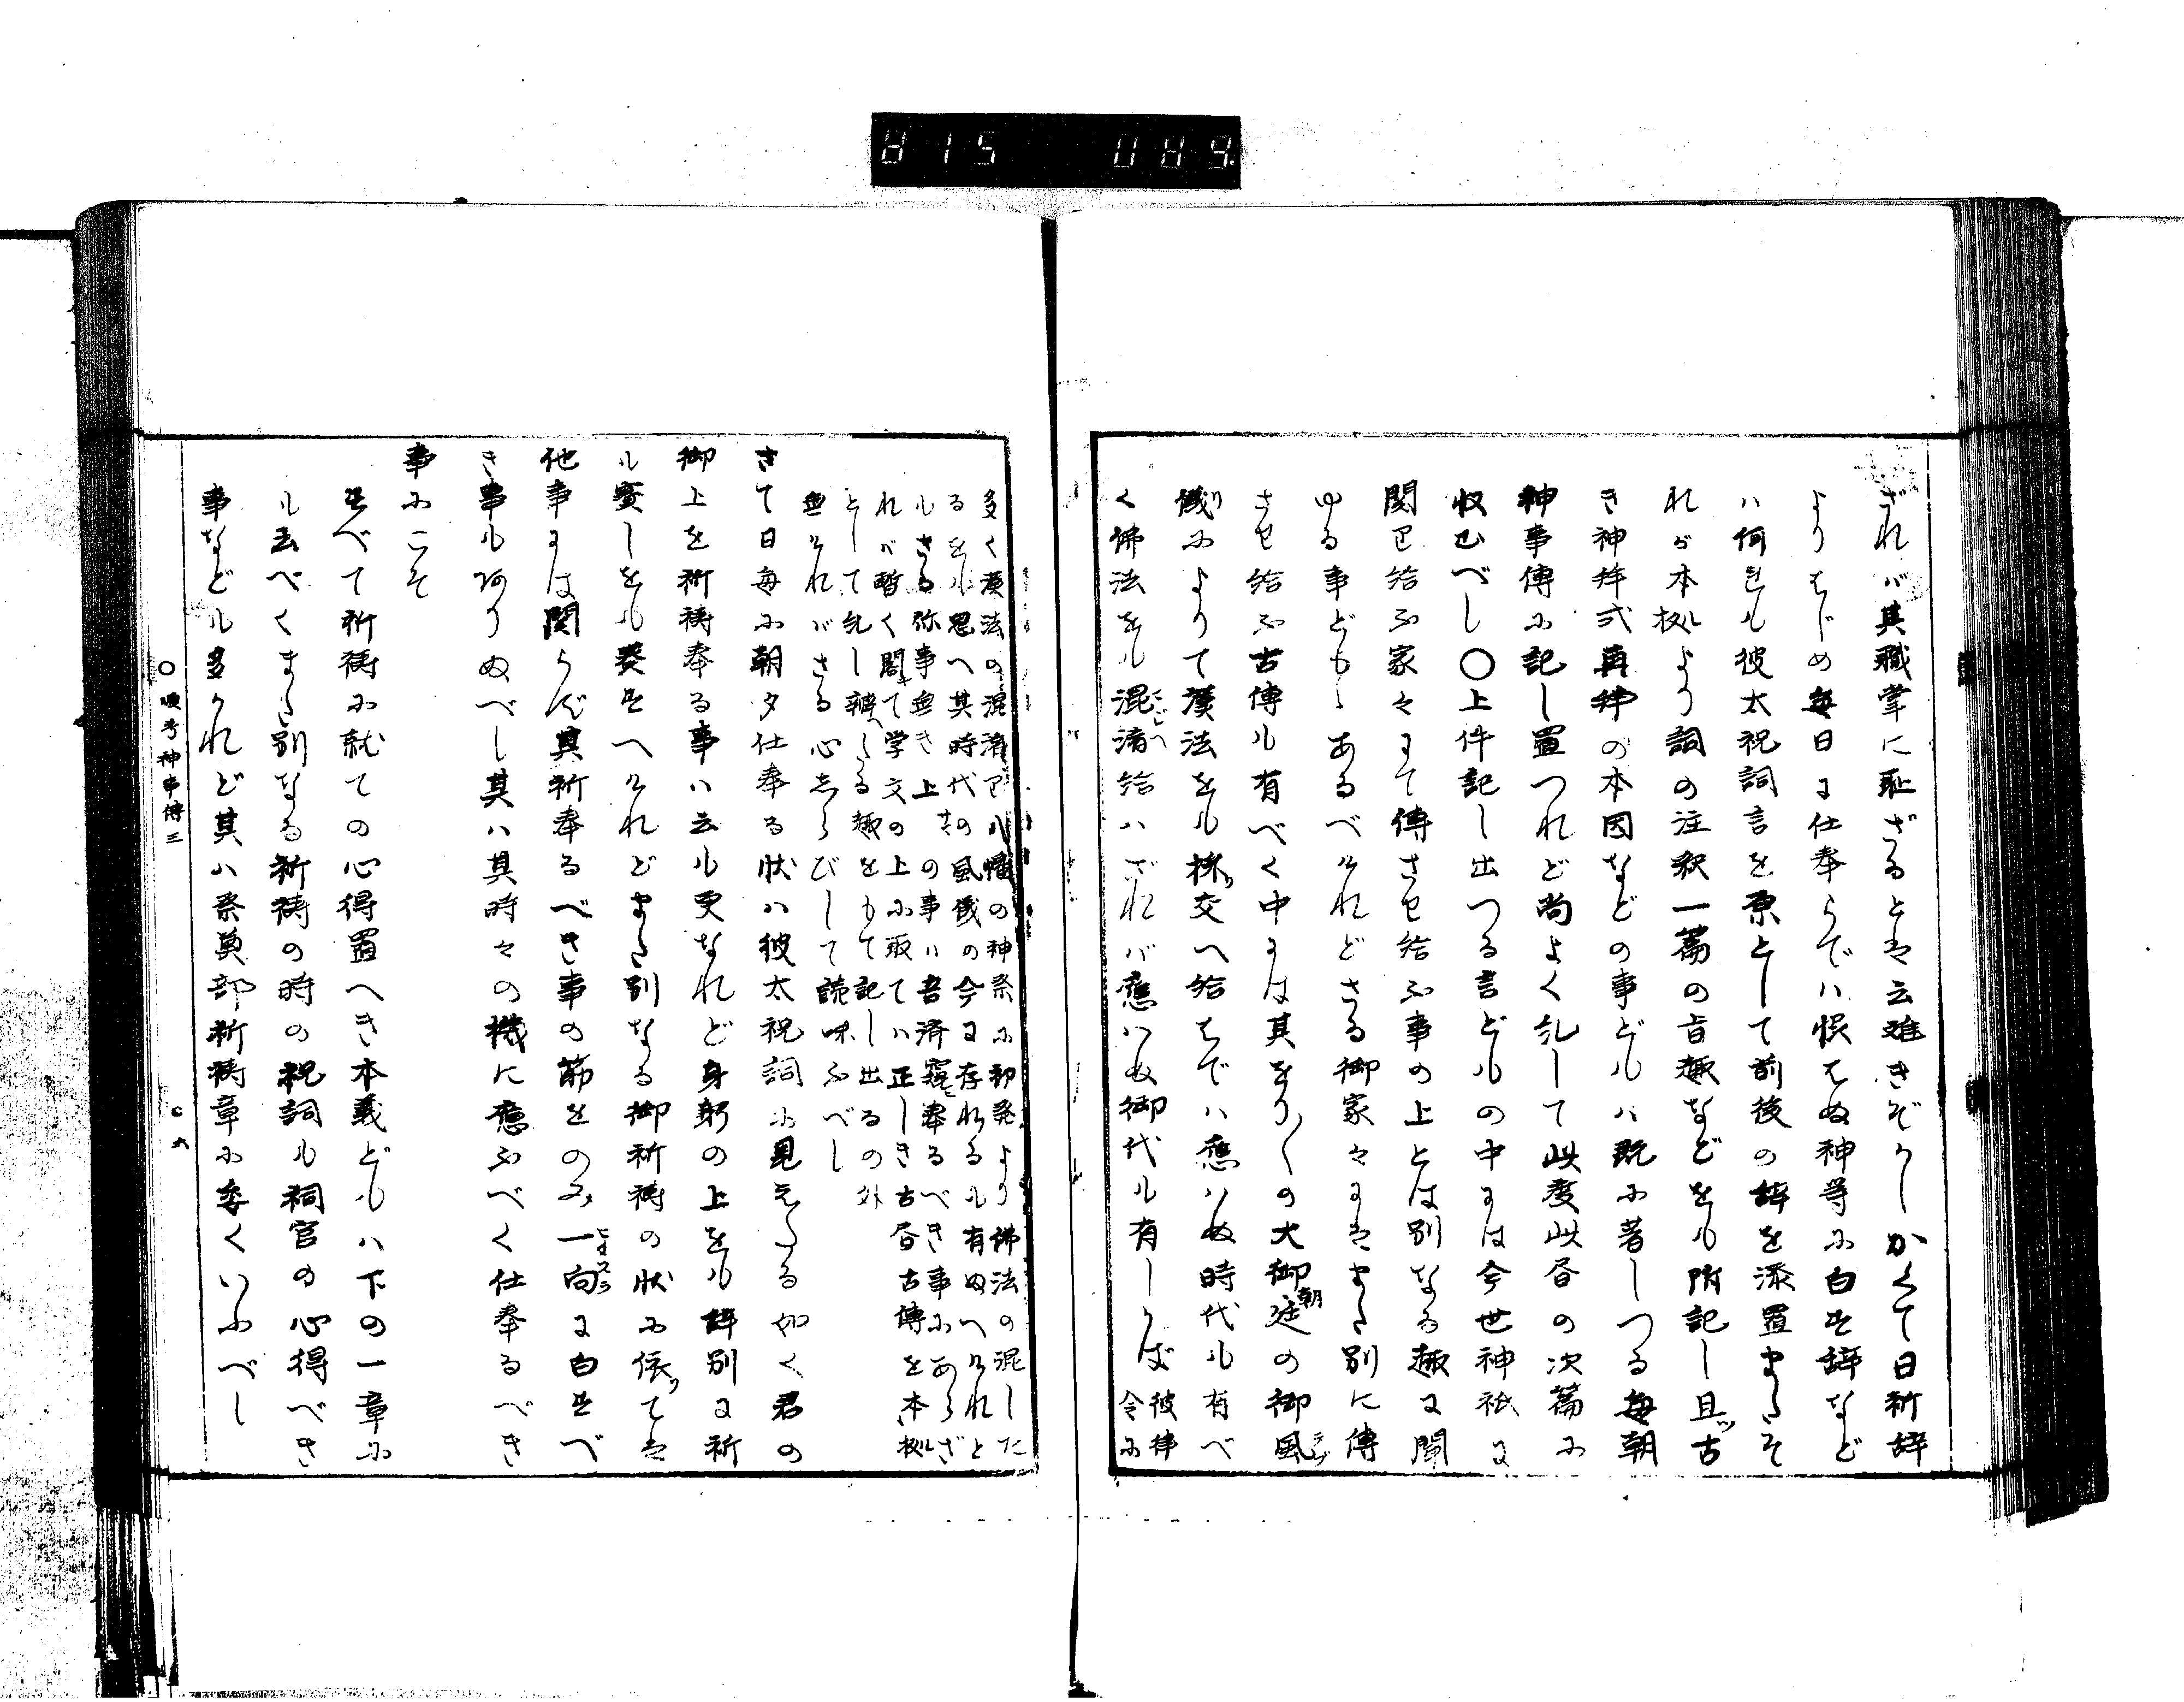 815 089
ざれバ其職掌に耻ざるとは云難きぞかしかくて日祈辞
よりはじめ毎日に仕奉らでハ悵はぬ神等に白す辞など
ハ何れも彼太祝詞言を原として前後の辞を添置またそ
れが本拠より詞の注釈一篇の旨趣などをも附記し且ッ古
き神拝式再拝の本因などの事どもハ既に著しつる毎朝
神事傳に記し置つれど尚よく糺して此度此書の次篇に
収むべし〇上件記し出つる言どもの中には今世神祇に
関り給ふ家々にて傳させ給ふ事の上とは別なる趣に聞
ゆる事どもゝあるべけれどさる御家々にはまた別に傳
させ給ふ古傳も有べく中には其をり〱の大御朝廷の御風
儀によりて漢法をも採交へ給はでハ應ハぬ時代も有べ
く佛法をも混淆給ハざれバ應ハぬ御代も有しかば彼律令に
多く漢法の混淆り八幡の神祭に初発より佛法の混した
るをも思へ其時代の風儀の今に存れるも有ぬへけれと
もさる弥事無き上の事ハ吾済窺奉るべき事にあらざ
れバ暫く閣て学文の上に取てハ正しき古書古傳を本拠
として糺し辨へたる趣をもて記し出るの外
無けれバさる心しらびして読味ふべし
さて日毎に朝夕仕奉る状ハ彼太祝詞に見えたる如く君の
御上を祈祷奉る事ハ云も更なれど身躬の上をも辞別に祈
も實しをも養すへけれどまた別なる御祈祷の状に依ッては
他事には関らず其祈奉るべき事の筋をのみ一向ヒタスラに白すべ
き事も阿りぬべし其ハ其時々の機に應ふべく仕奉るべき
事にこそ
すべて祈祷に就ての心得置へき本義どもハ下の一章に
も云べくまた別なる祈祷の時の祝詞も祠官の心得べき
事なども多かれど其ハ祭奠部祈祷章に委くいふべし
神事傳三